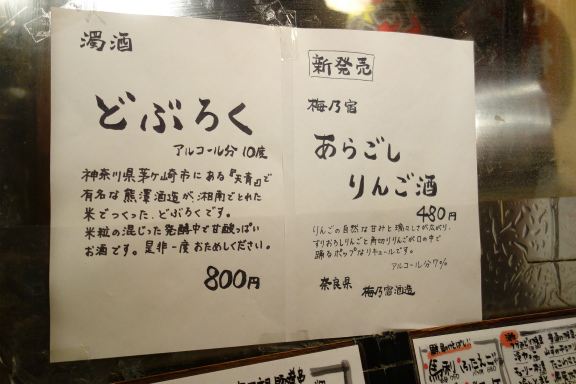 濁酒
どぶろく
アルコール分 10度
神奈川県茅ヶ崎市にある『天青』で
有名な熊澤酒造が、湘南でとれた
米でつくった、どぶろくです。
米粒の混じった発酵中で甘酸っぱい
お酒です。是非一度おためしください。
800円
新発売
梅乃宿
あらごし
りんご酒
480円
りんごの自然な甘みと瑞々しさが広がり、
すりおろしりんごと角切りりんごが口の中で
踊るポップなリキュールです。
アルコール分7%
奈良県 梅乃宿酒造
馬刺